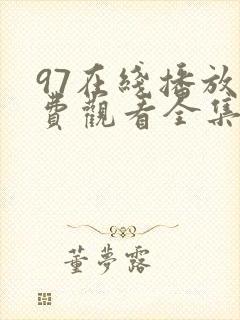 97在綫播放
費觀看全集
董夢露